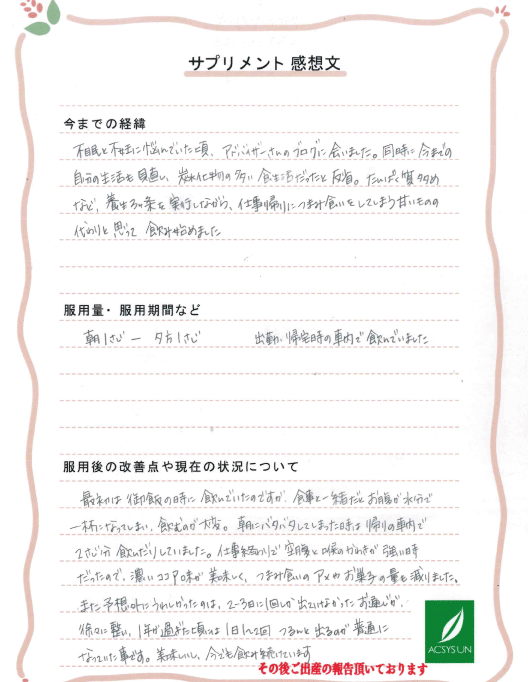 サプリメント 感想文
今までの経緯
不眠と不妊に悩んでいた頃、アドバイザーさんのブログに会いました。同時に今までの
自分の生活を見直し、炭水化物の多い食生活だったと反省。たんぱく質多め
など、養生3か条を実行しながら、仕事帰りにつまみ食いをしてしまう甘いものの
代わりと思って 飲み始めました
服用量・服用期間など
朝1さじ ー 夕方1さじ 出勤、帰宅時の車内で飲んでいました
服用後の改善点や現在の状況について
最初は御飯の時に飲んでいたのですが、食事と一緒だとお腹が水分で
一杯になってしまい、飲むのが大変。朝にバタバタしてしまった時は帰りの車内で
2さじ分飲んだりしていました。仕事終わりで空腹と喉のかわきが強い時
だったので、濃いココア味が美味しく、つまみ食いのアメやお菓子の量も減りました。
また予想外にうれしかったのは、2~3日に1回しか出ていなかったお通じが、
徐々に整い、1年が過ぎた頃には1日1~2回 つるんと出るのが普通に
なっていた事です。美味しいし、今でも飲み続けています
その後ご出産の報告頂いております
ACSYSUN